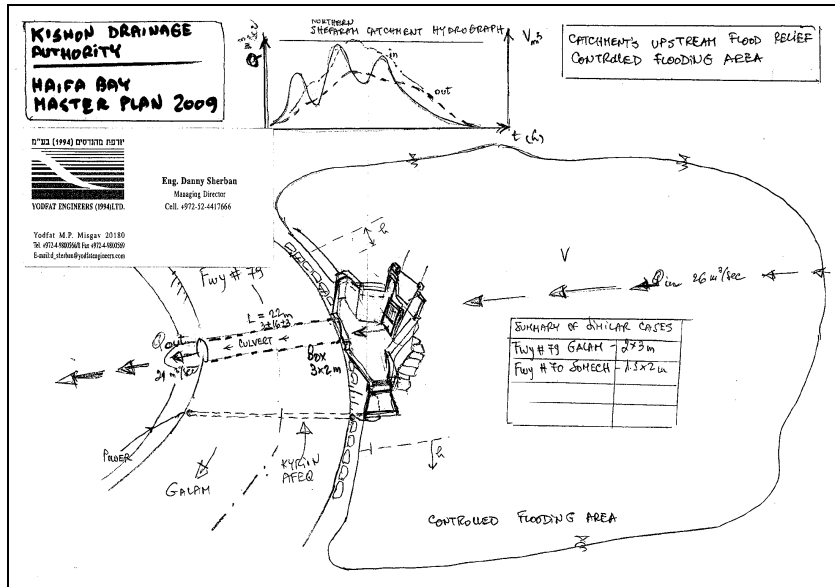 KISHON DRAINAGE
AUTHORITY
HAIFA BAY
MASTER PLAN 2009
NORTHERN
SHEFARAM CATCHMENT HYDROGRAPH
Q
in
out
V m³
t (h)
CATCHMENT'S UPSTREAM FLOOD RELIEF
CONTROLLED FLOODING AREA
יודפת מהנדסים (1994) בע"מ
YODFAT ENGINEERS (1994)LTD.
Eng. Danny Sherban
Managing Director
Cell. +972-52-4417666
Yodfat M.P. Misgav 20180
Tel. +972-4-9800566/8 Fax +972-4-9800569
E-mail:d_sherban@yodfatengineers.com
Fwy # 79
h
V
Qin 26 m³/sec
L = 22m
3+16+3
CULVERT
Qout
21 m³/sec
BOX
3x2m
SUMMARY OF SIMILAR CASES
Fwy # 79 GALAM - 2x3m
Fwy # 70 SOMECH - 1.5x2m
GALAM
KYRIN
AFEQ
h
CONTROLLED FLOODING AREA